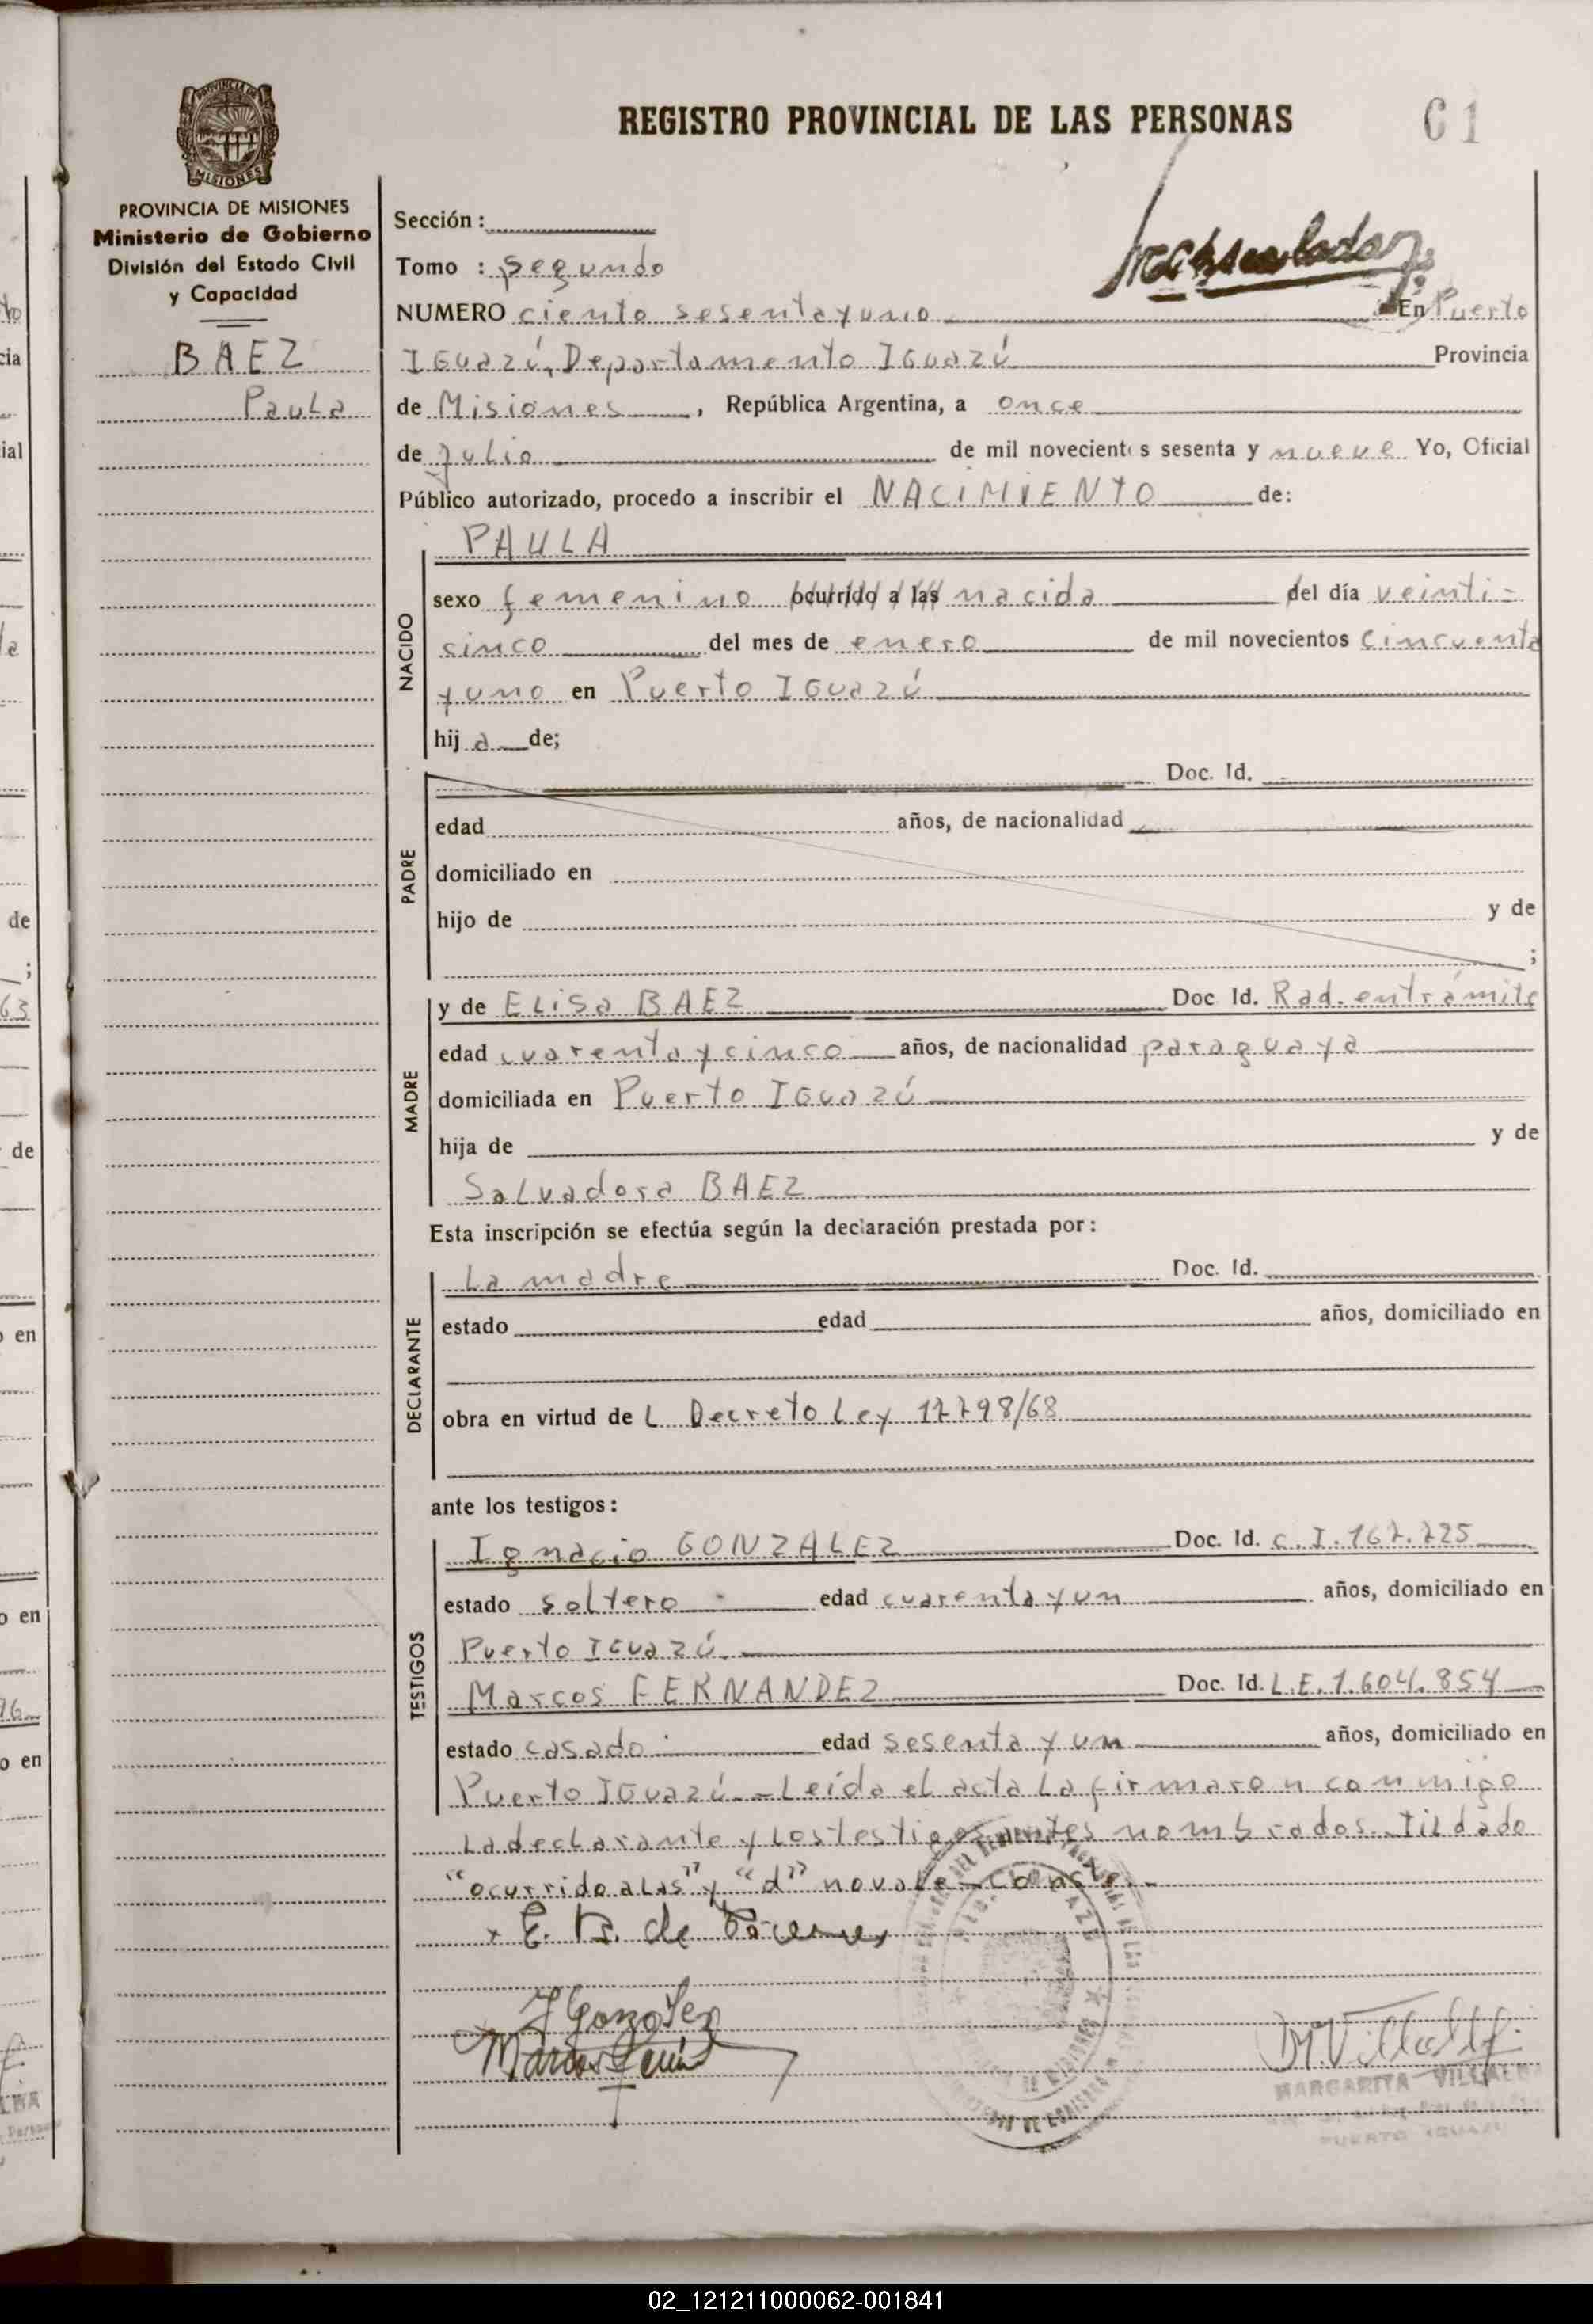 REGISTRO PROVINCIAL DE LAS PERSONAS
61
PROVINCIA DE MISIONES
PROVINCIA DE MISIONES
Ministerio de Gobierno
División del Estado Civil
y Capacidad
BAEZ
Paula
Sección :
Tomo : segundo
NUMERO ciento sesenta y uno En Puerto
Iguazú, Departamento Iguazú Provincia
de Misiones, República Argentina, a once
de Julio de mil novecientos sesenta y nueve Yo, Oficial
Público autorizado, procedo a inscribir el NACIMIENTO de:
NACIDO
PAULA
sexo femenino ocurrido a las nacida del día veinti-
cinco del mes de enero de mil novecientos cincuenta
y uno en Puerto Iguazú
hij a de;
PADRE
Doc. Id.
edad años, de nacionalidad
domiciliado en
hijo de y de
;
MADRE
y de Elisa BAEZ Doc Id. Rad. en trámite
edad cuarenta y cinco años, de nacionalidad paraguaya
domiciliada en Puerto Iguazú
hija de y de
Salvadora BAEZ
Esta inscripción se efectúa según la declaración prestada por:
DECLARANTE
La madre Doc. Id.
estado edad años, domiciliado en
obra en virtud de L Decreto Ley 17798/68
ante los testigos:
TESTIGOS
Ignacio GONZALEZ Doc. Id. C.I. 167.725
estado soltero edad cuarenta y un años, domiciliado en
Puerto Iguazú.
Marcos FERNANDEZ Doc. Id. L.E. 1.604.854
estado casado edad sesenta y un años, domiciliado en
Puerto Iguazú.- Leída el acta la firmaron conmigo
la declarante y los testigos antes nombrados. Tildado
"ocurrido a las" y "d" no vale. Conste.-
E. B. de
J Gonzalez
Marcos
M. Villalb
MARGARITA VILLALBA
PUERTO IGUAZU
de
;
63
de
en
o en
96
o en
02_121211000062-001841